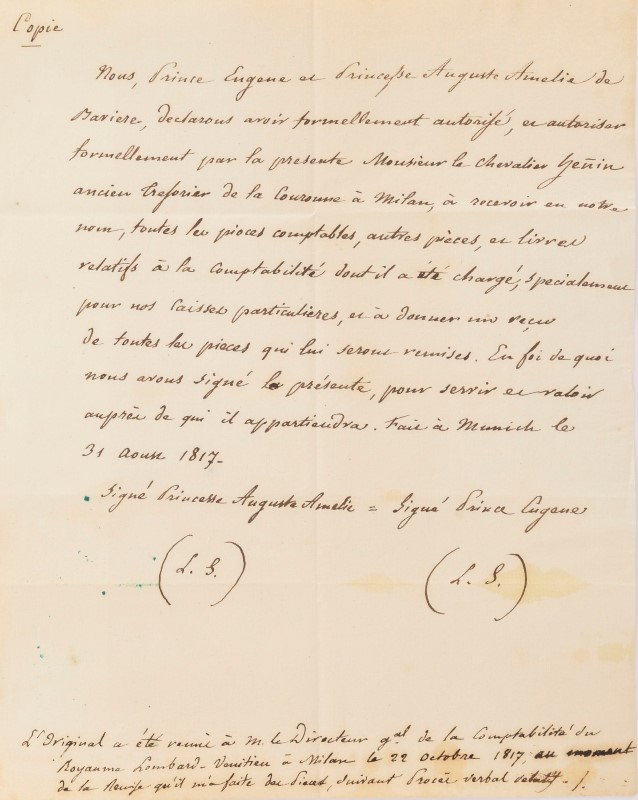 Copie
Nous, Prince Eugene et Princesse Auguste Amelie de
Baviere, declarons avoir formellement autorisé, et autoriser
formellement par la presente Monsieur le Chevalier Hennin
ancien Tresorier de la Couronne à Milan, à recevoir en notre
nom, toutes les pieces comptables, autres pièces, et livres
relatifs à la Comptabilité dont il a été chargé, specialement
pour nos Caisses particulieres, et à donner un reçu
de toutes les pieces qui lui seront remises. En foi de quoi
nous avons signé la présente, pour servir et valoir
auprès de qui il appartiendra. Fait à Munich le
31 Aoust 1817-
Signé Princesse Auguste Amelie = Signé Prince Eugene
(L. S.) (L. S.)
L'Original a été remis à M. le Directeur gal de la Comptabilité du
Royaume Lombard-Venitien à Milan le 22 Octobre 1817, au moment
de la Remise qu'il m'a faite des Pieces, suivant Procès verbal